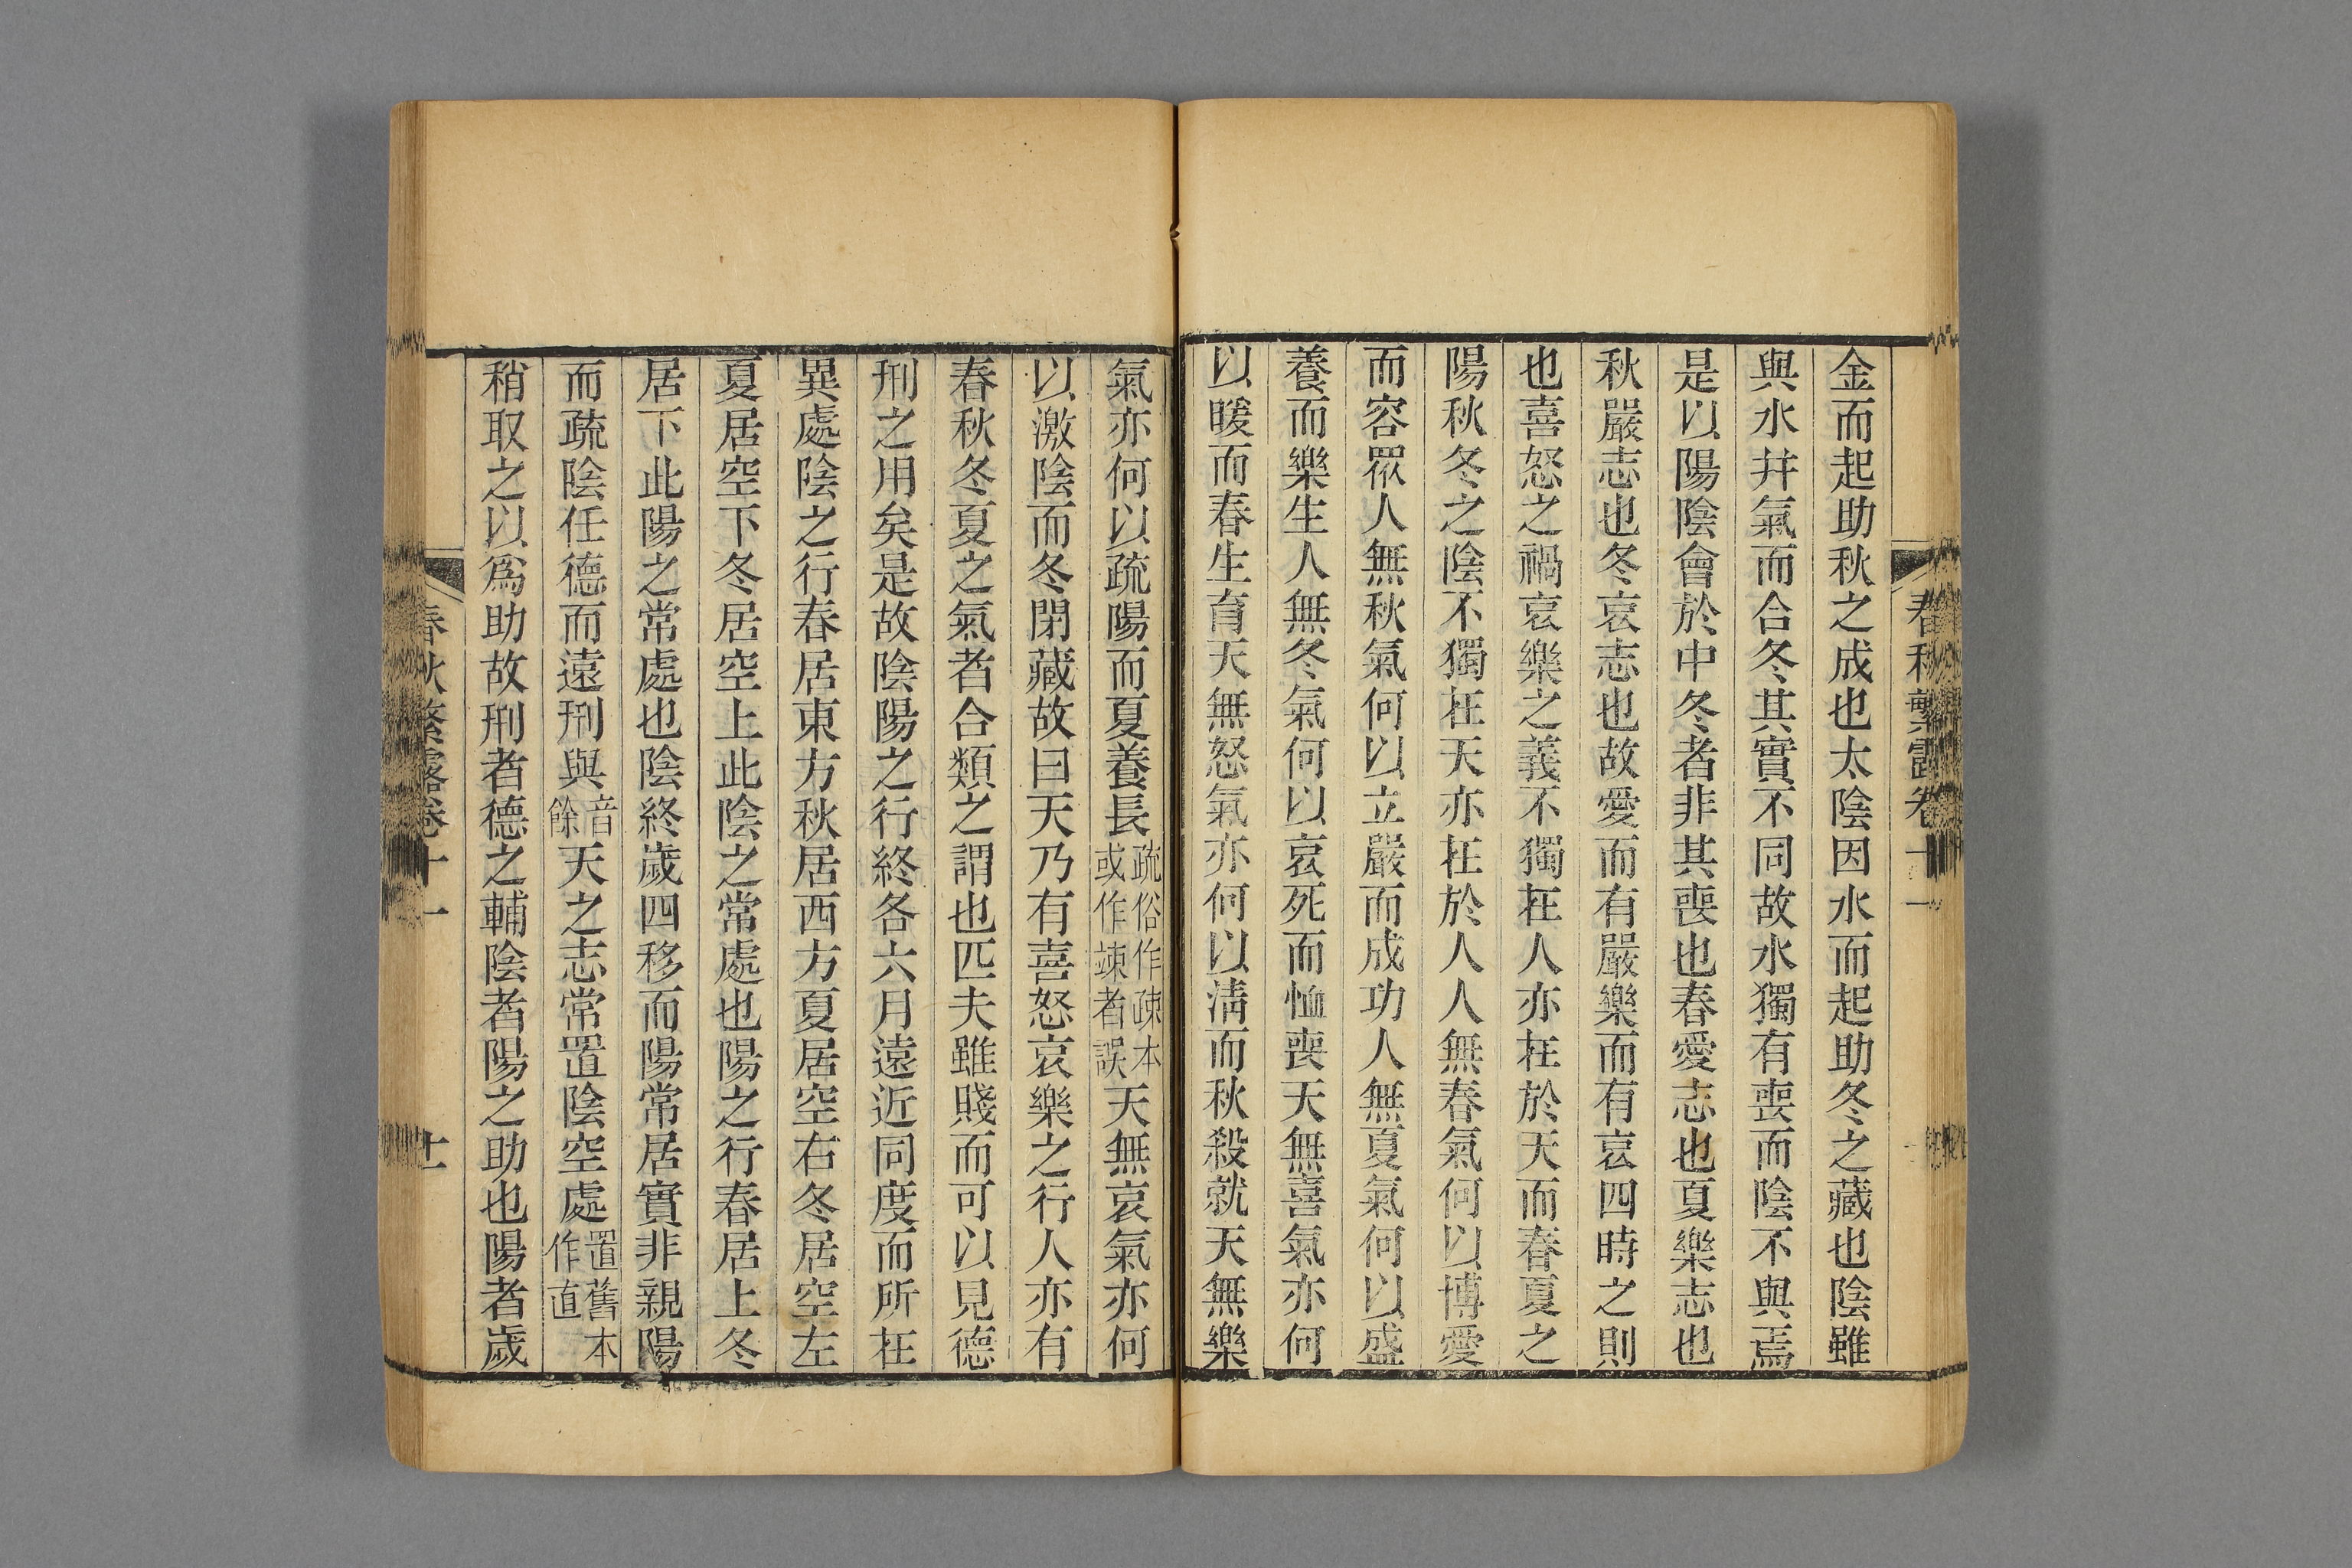 春秋繁露卷十一
金而起助秋之成也太陰因水而起助冬之藏也陰雖
與水幷氣而合冬其實不同故水獨有喪而陰不與焉
是以陽陰會於中冬者非其喪也春愛志也夏樂志也
秋嚴志也冬哀志也故愛而有嚴樂而有哀四時之則
也喜怒之禍哀樂之義不獨在人亦在於天而春夏之
陽秋冬之陰不獨在天亦在於人人無春氣何以博愛
而容眾人無秋氣何以立嚴而成功人無夏氣何以盛
養而樂生人無冬氣何以哀死而恤喪天無喜氣亦何
以暖而春生育天無怒氣亦何以淸而秋殺就天無樂
氣亦何以疏陽而夏養長疏俗作疎本或作竦者誤天無哀氣亦何
以激陰而冬閉藏故曰天乃有喜怒哀樂之行人亦有
春秋冬夏之氣者合類之謂也匹夫雖賤而可以見德
刑之用矣是故陰陽之行終各六月遠近同度而所在
異處陰之行春居東方秋居西方夏居空右冬居空左
夏居空下冬居空上此陰之常處也陽之行春居上冬
居下此陽之常處也陰終歲四移而陽常居實非親陽
而疏陰任德而遠刑與音餘天之志常置陰空處置舊本作直
稍取之以爲助故刑者德之輔陰者陽之助也陽者歲
春秋繁露卷十一